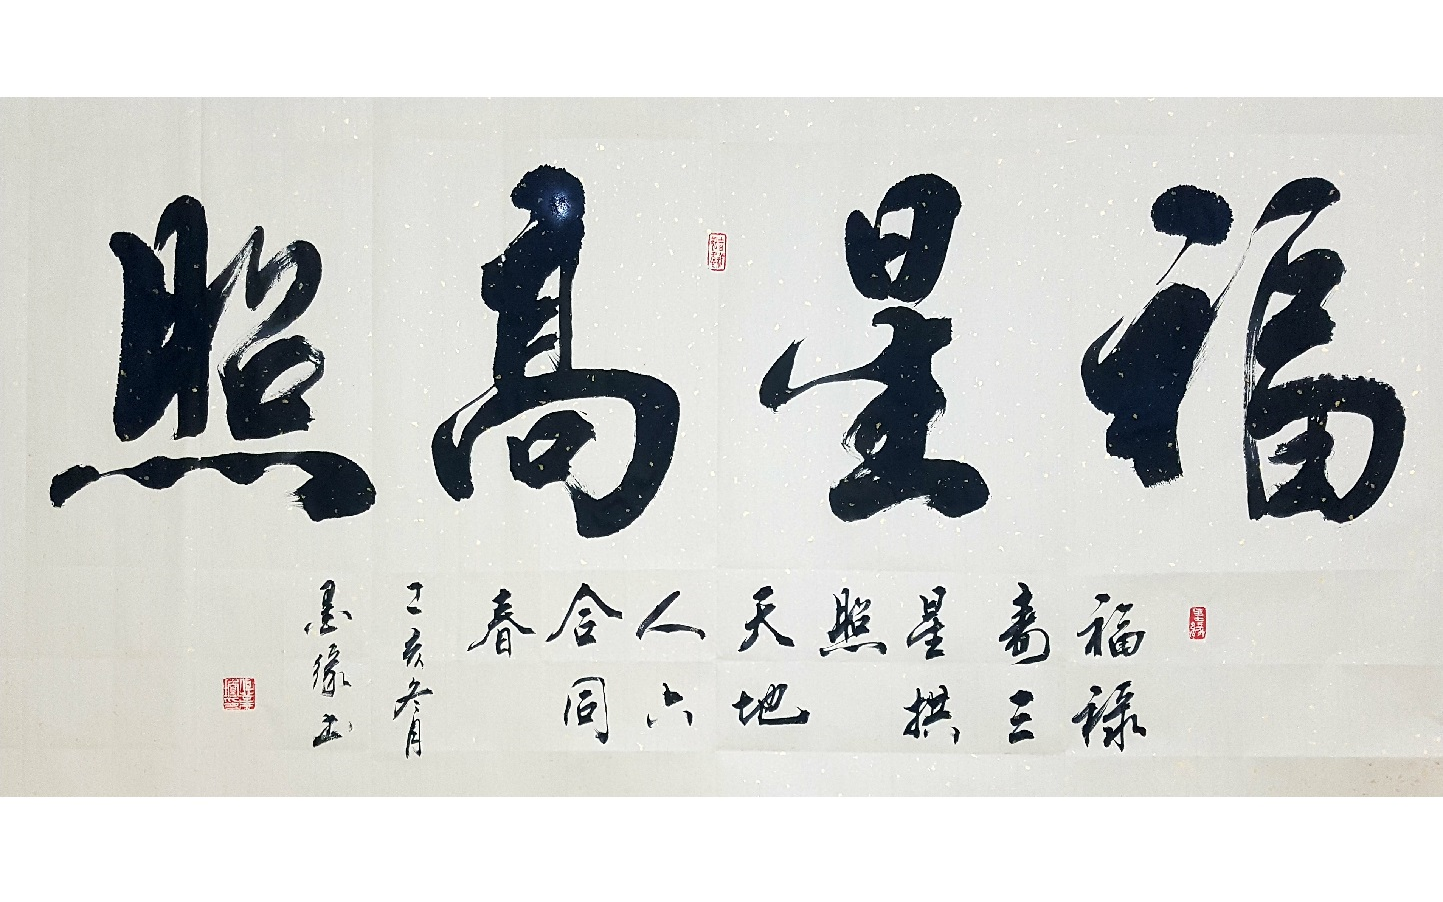 福星高照
福禄
寿三
星拱
照
天地
人六
合同
春
丁亥冬月
墨缘书